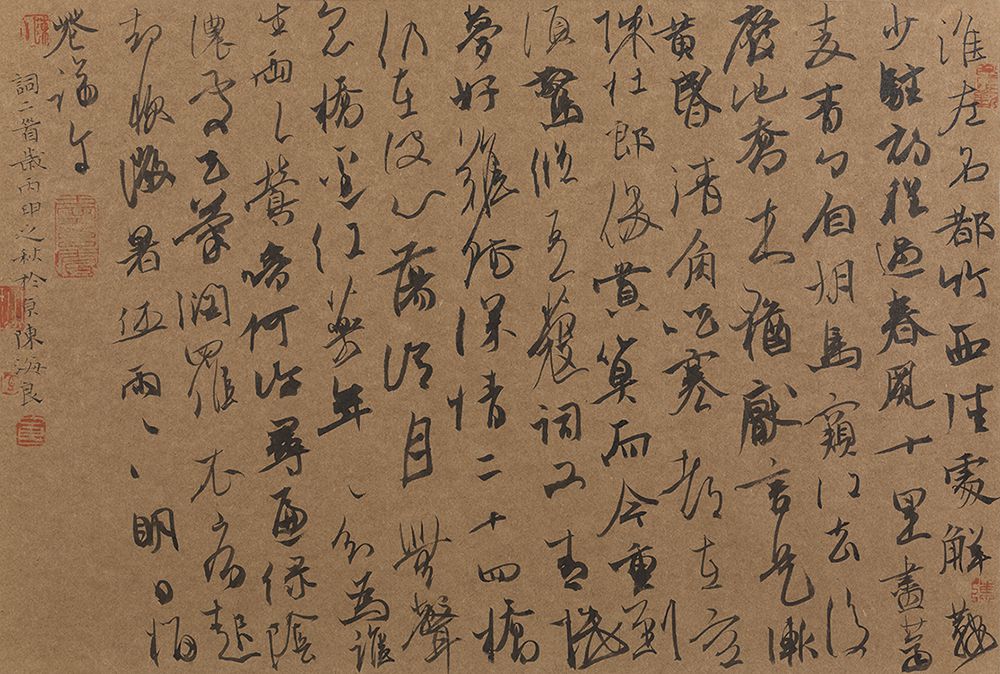 淮左名都竹西佳處解鞍
少駐初程過春風十里盡薺
麥青々自胡馬窺江去後
廢池喬木猶厭言兵漸
黃昏清角吹寒都在空
城杜郎俊賞算而今重到
須驚縱豆蔻詞工青樓
夢好難賦深情二十四橋
仍在波心蕩冷月無聲
念橋邊紅藥年、知為誰
生兩々鶯啼何許尋遍綠陰
濃處天氣潤羅衣病起
卻忺微暑休雨、、明日榴
花端午
詞二首歲丙申之秋於京陳海良